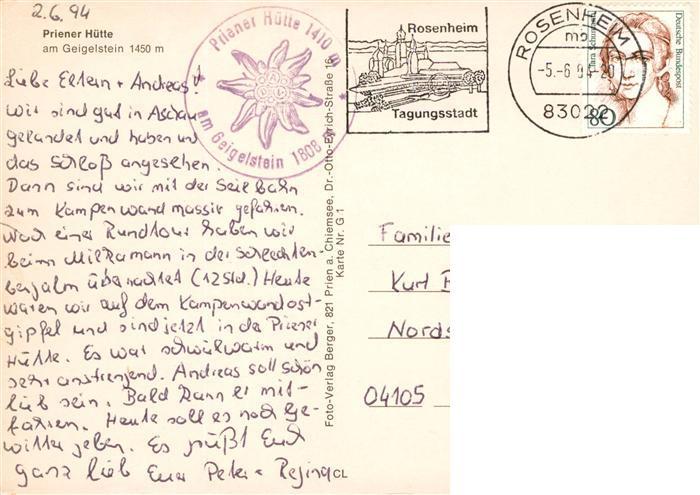 2.6.94
Priener Hütte
am Geigelstein 1450 m
Liebe Eltern + Andreas!
Wir sind gut in Aschau
gelandet und haben uns
das Schloß angesehen.
Dann sind wir mit der Seilbahn
zum Kampenwandmassiv gefahren.
Nach einer Rundtour haben wir
beim Milkamann in der Schlechten-
bergalm übernachtet (12 Std.) Heute
waren wir auf dem Kampenwandost-
gipfel und sind jetzt in der Priener
Hütte. Es war schwülwarm und
sehr anstrengend. Andreas soll schön
lieb sein. Bald kann er mit-
fahren. Heute soll es noch Ge-
witter geben. Es grüßt Euch
ganz lieb Eure Peter + Regina
CL
Priener Hütte 1410 m
am Geigelstein 1808
Foto-Verlag Berger, 821 Prien a. Chiemsee, Dr.-Otto-Eyrich-Straße 16
Karte Nr. G 1
Rosenheim
Tagungsstadt
ROSENHEIM 1
mb
-5.-6.94-20
83022
Deutsche Bundespost
80
Familie
Kurt
Nords
04105